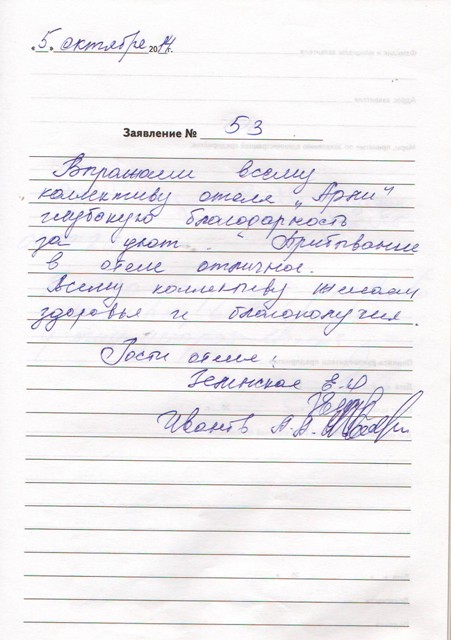 „5“ октября 2014 г.
Заявление № 53
Выражаем всему
коллективу отеля „Арни“
глубокую благодарность
за уют.
в отеле отличное.
Всему коллективу желаем
здоровья и благополучия.
Гости отеля: